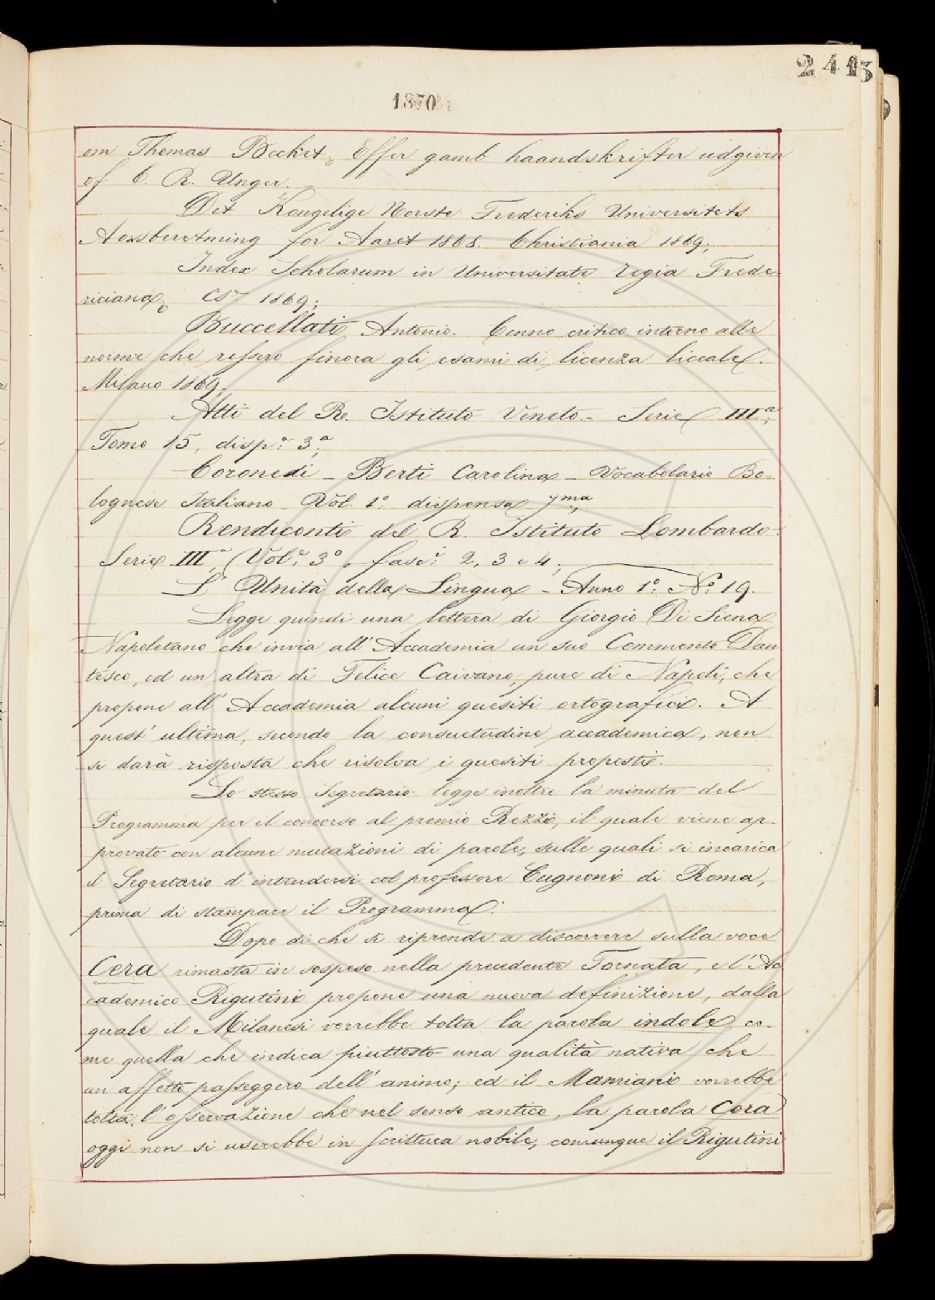 2415
1870
om Thomas Becket. Efter gamb haandskrifter udgiven
of C. R. Unger.
Det Kongelige Norste Frederiks Universitets
Aoxsberetming for Aaret 1868. Christiania 1869;
Index Scholarum in Universitate regia Frede-
riciana, 1869;
Buccellati Antonio. Cenno critico intorno alle
norme che ressero finora gli esami di licenza liceale.
Milano 1869;
Atti del R. Istituto Veneto - Serie III.ª,
Tomo 15, disp.ª 3.ª;
Coronedi - Berti Carolina - Vocabolario Bo-
lognese Italiano Vol. 1º: dispensa 7ma,
Rendiconti del R. Istituto Lombardo.
Serie III, (Vol.º 3º, fasc.i 2, 3 e 4;
L'Unità della Lingua - Anno 1º: Nº. 19.
Legge quindi una lettera di Giorgio Di Siena
Napoletano che invia all'Accademia un suo Commento Dan
tesco, ed un altra di Felice Caivano, pure di Napoli, che
propone all'Accademia alcuni quesiti ortografici. A
quest'ultima, secondo la consuetudine accademica, non
si darà risposta che risolva i quesiti proposti.
Lo stesso Segretario legge inoltre la minuta del
Programma per il concorso al premio Rezzi, il quale viene ap-
provato con alcune mutazioni di parole, sulle quali si incarica
il Segretario d'intendersi col professore Cugnoni di Roma,
prima di stampare il Programma.
Dopo di che si riprende a discorrere sulla voce
Cera rimasta in sospeso nella precedente Tornata, e l'Ac
cademico Rigutini propone una nuova definizione, dalla
quale il Milanesi vorrebbe tolta la parola indole, co-
me quella che indica piuttosto una qualità nativa che
un affetto passeggero dell'animo; ed il Mamiani vorrebbe
tolta l'osservazione che nel senso antico, la parola Cera
oggi non si userebbe in scrittura nobile, comunque il Rigutini